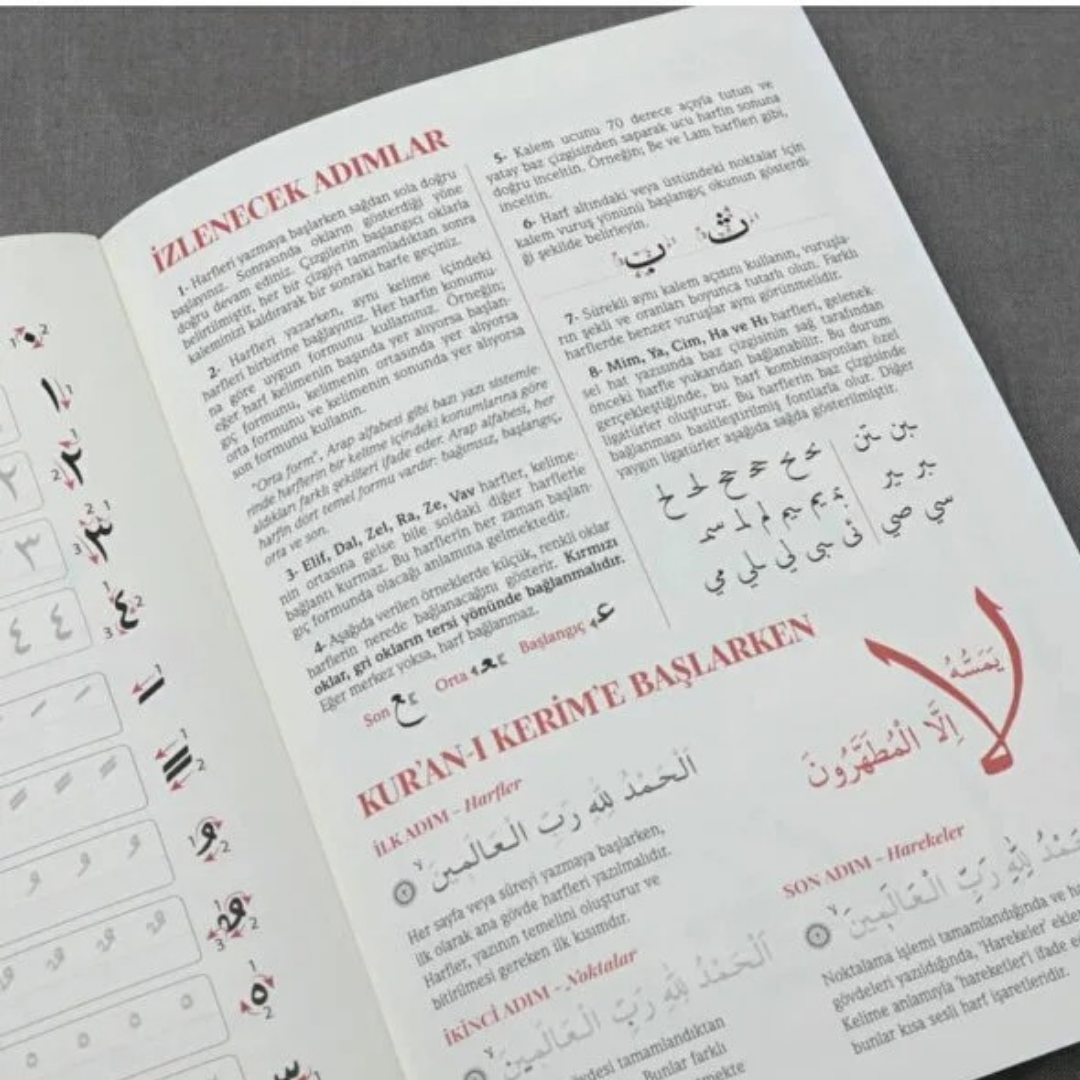 İZLENECEK ADIMLAR
1- Harfleri yazmaya başlarken sağdan sola doğru
başlayınız. Sonrasında okların gösterdiği yöne
doğru devam ediniz. Çizgilerin başlangıcı oklarla
belirtilmiştir, her bir çizgiyi tamamladıktan sonra
kaleminizi kaldırarak bir sonraki harfe geçiniz.
2- Harfleri yazarken, aynı kelime içindeki
harfleri birbirine bağlayınız. Her harfin konumu-
na göre uygun formunu kullanınız. Örneğin;
eğer harf kelimenin başında yer alıyorsa başlan-
gıç formunu, kelimenin ortasında yer alıyorsa
orta formunu ve kelimenin sonunda yer alıyorsa
son formunu kullanın.
"Orta form", Arap alfabesi gibi bazı yazı sistemle-
rinde harflerin bir kelime içindeki konumlarına göre
aldıkları farklı şekilleri ifade eder. Arap alfabesi, her
harfin dört temel formu vardır: bağımsız, başlangıç,
orta ve son.
3- Elif, Dal, Zel, Ra, Ze, Vav harfler, kelime-
nin ortasına gelse bile soldaki diğer harflerle
bağlantı kurmaz. Bu harflerin her zaman başlan-
gıç formunda olacağı anlamına gelmektedir.
4- Aşağıda verilen örneklerde küçük, renkli oklar
harflerin nerede bağlanacağını gösterir. Kırmızı
oklar, gri okların tersi yönünde bağlanmalıdır.
Eğer merkez yoksa, harf bağlanmaz.
Son ـع Orta ـعـ Başlangıç عـ
5- Kalem ucunu 70 derece açıyla tutun ve
yatay baz çizgisinden saparak ucu harfin sonuna
doğru inceltin. Örneğin; Be ve Lam harfleri gibi,
inceltin.
6- Harf altındaki veya üstündeki noktalar için
kalem vuruş yönünü başlangıç okunun gösterdi-
ği şekilde belirleyin.
ب ث
7- Sürekli aynı kalem açısını kullanın, vuruşla-
rın şekli ve oranları boyunca tutarlı olun. Farklı
harflerde benzer vuruşlar aynı görünmelidir.
8- Mim, Ya, Cim, Ha ve Hı harfleri, gelenek-
sel hat yazısında baz çizgisinin sağ tarafından
önceki harfle yukarıdan bağlanabilir. Bu durum
gerçekleştiğinde, bu harf kombinasyonları özel
ligatürler oluşturur. Bu harflerin baz çizgisinde
bağlanması basitleştirilmiş fontlarla olur. Diğer
yaygın ligatürler aşağıda sağda gösterilmiştir.
بن تن
سي صي
KUR'AN-I KERİM'E BAŞLARKEN
لا
يَمَسُّهُ
اِلَّا الْمُطَهَّرُونَ
İLK ADIM - Harfler
اَلْحَمْدُ لِلّٰهِ رَبِّ الْعَالَمِينَ
Her sayfa veya süreyi yazmaya başlarken,
ilk olarak ana gövde harfleri yazılmalıdır.
Harfler, yazının temelini oluşturur ve
bitirilmesi gereken ilk kısımdır.
İKİNCİ ADIM - Noktalar
اَلْحَمْدُ لِلّٰهِ رَبِّ الْعَالَمِينَ
tamamlandıktan
Bunlar farklı
SON ADIM - Harekeler
لِلّٰهِ رَبِّ الْعَالَمِينَ
Noktalama işlemi tamamlandığında ve
gövdeleri yazıldığında, 'Harekeler'
Kelime anlamıyla 'hareketler'i ifade
bunlar kısa sesli harf işaretleridir.